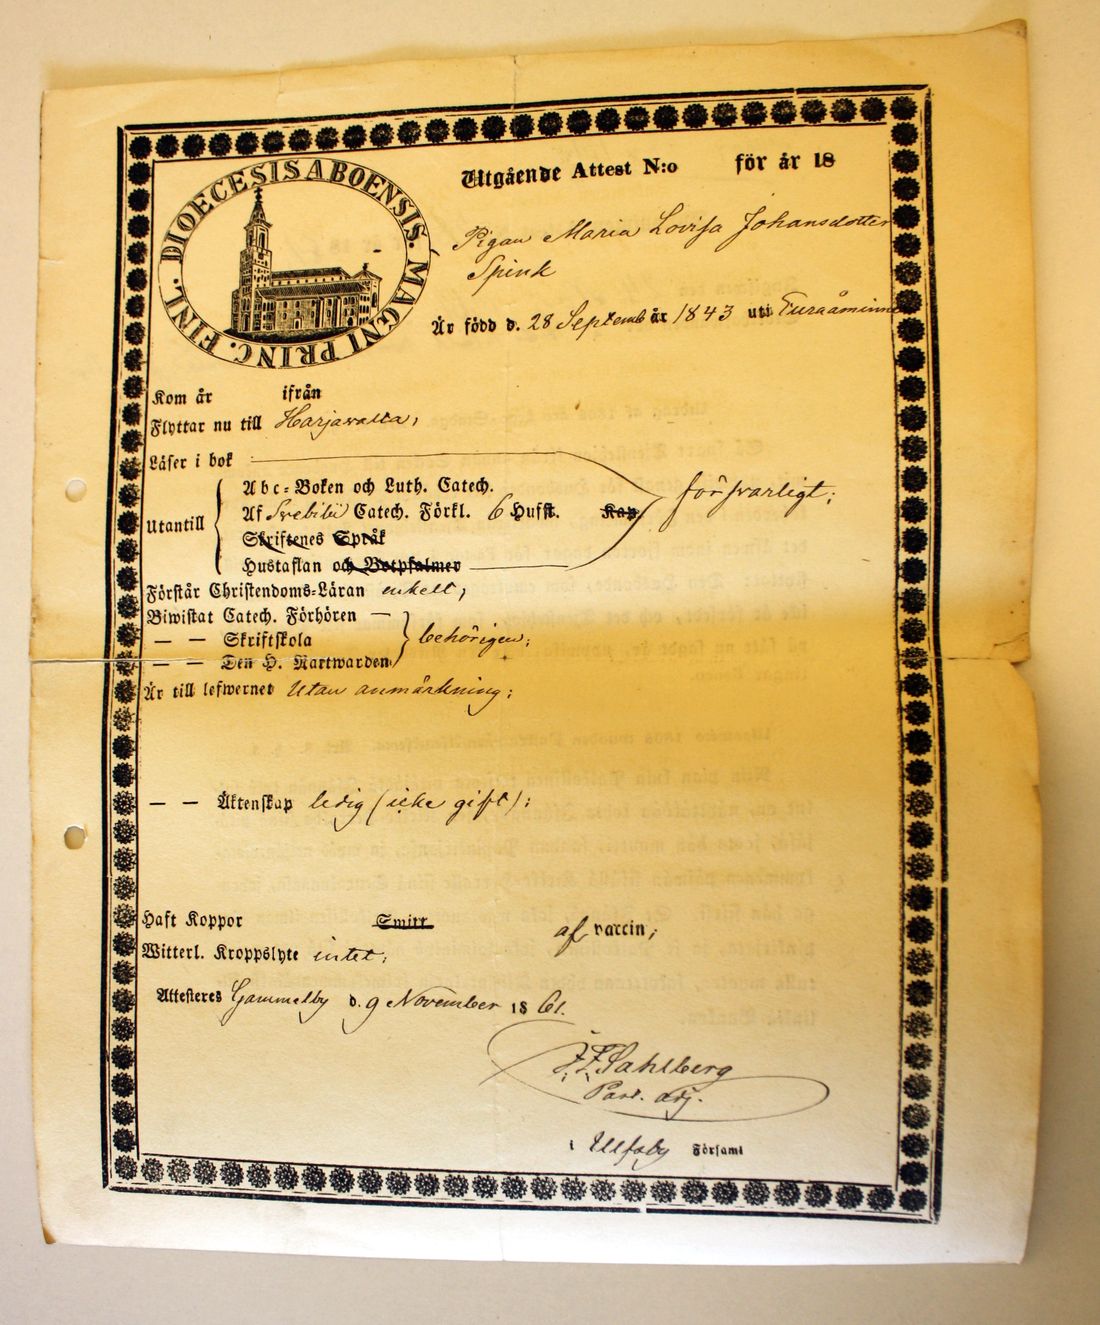 DIOECESIS ABOENSIS. MAGNI PRINC. FINL.
Utgående Attest N:o för år 18
Pigan Maria Lovisa Johansdotter
Spink
Är född d. 28 Septemb år 1843 uti Euraåminne
Kom år ifrån
Flyttar nu till Harjavalta;
Läser i bok
Abc-Boken och Luth. Catech.
Utantill Af Svebilii Catech. Förkl. 6 Hufst. Kap försvarligt;
Skriftenes Språk
Hustaflan och Botpsalmer
Förstår Christendoms-Läran enkelt;
Biwistat Catech. Förhören —
— — Skriftskola behörigen;
— — Den H. Nattwarden
Är till lefwernet utan anmärkning;
— — Äktenskap ledig (icke gift);
Haft Koppor Smitt af vaccin;
Witterl. Kroppslyte intet;
Attesteres Gammelby d. 9 November 1861.
Sahlberg
Past. adj.
i Ulfsby Församl